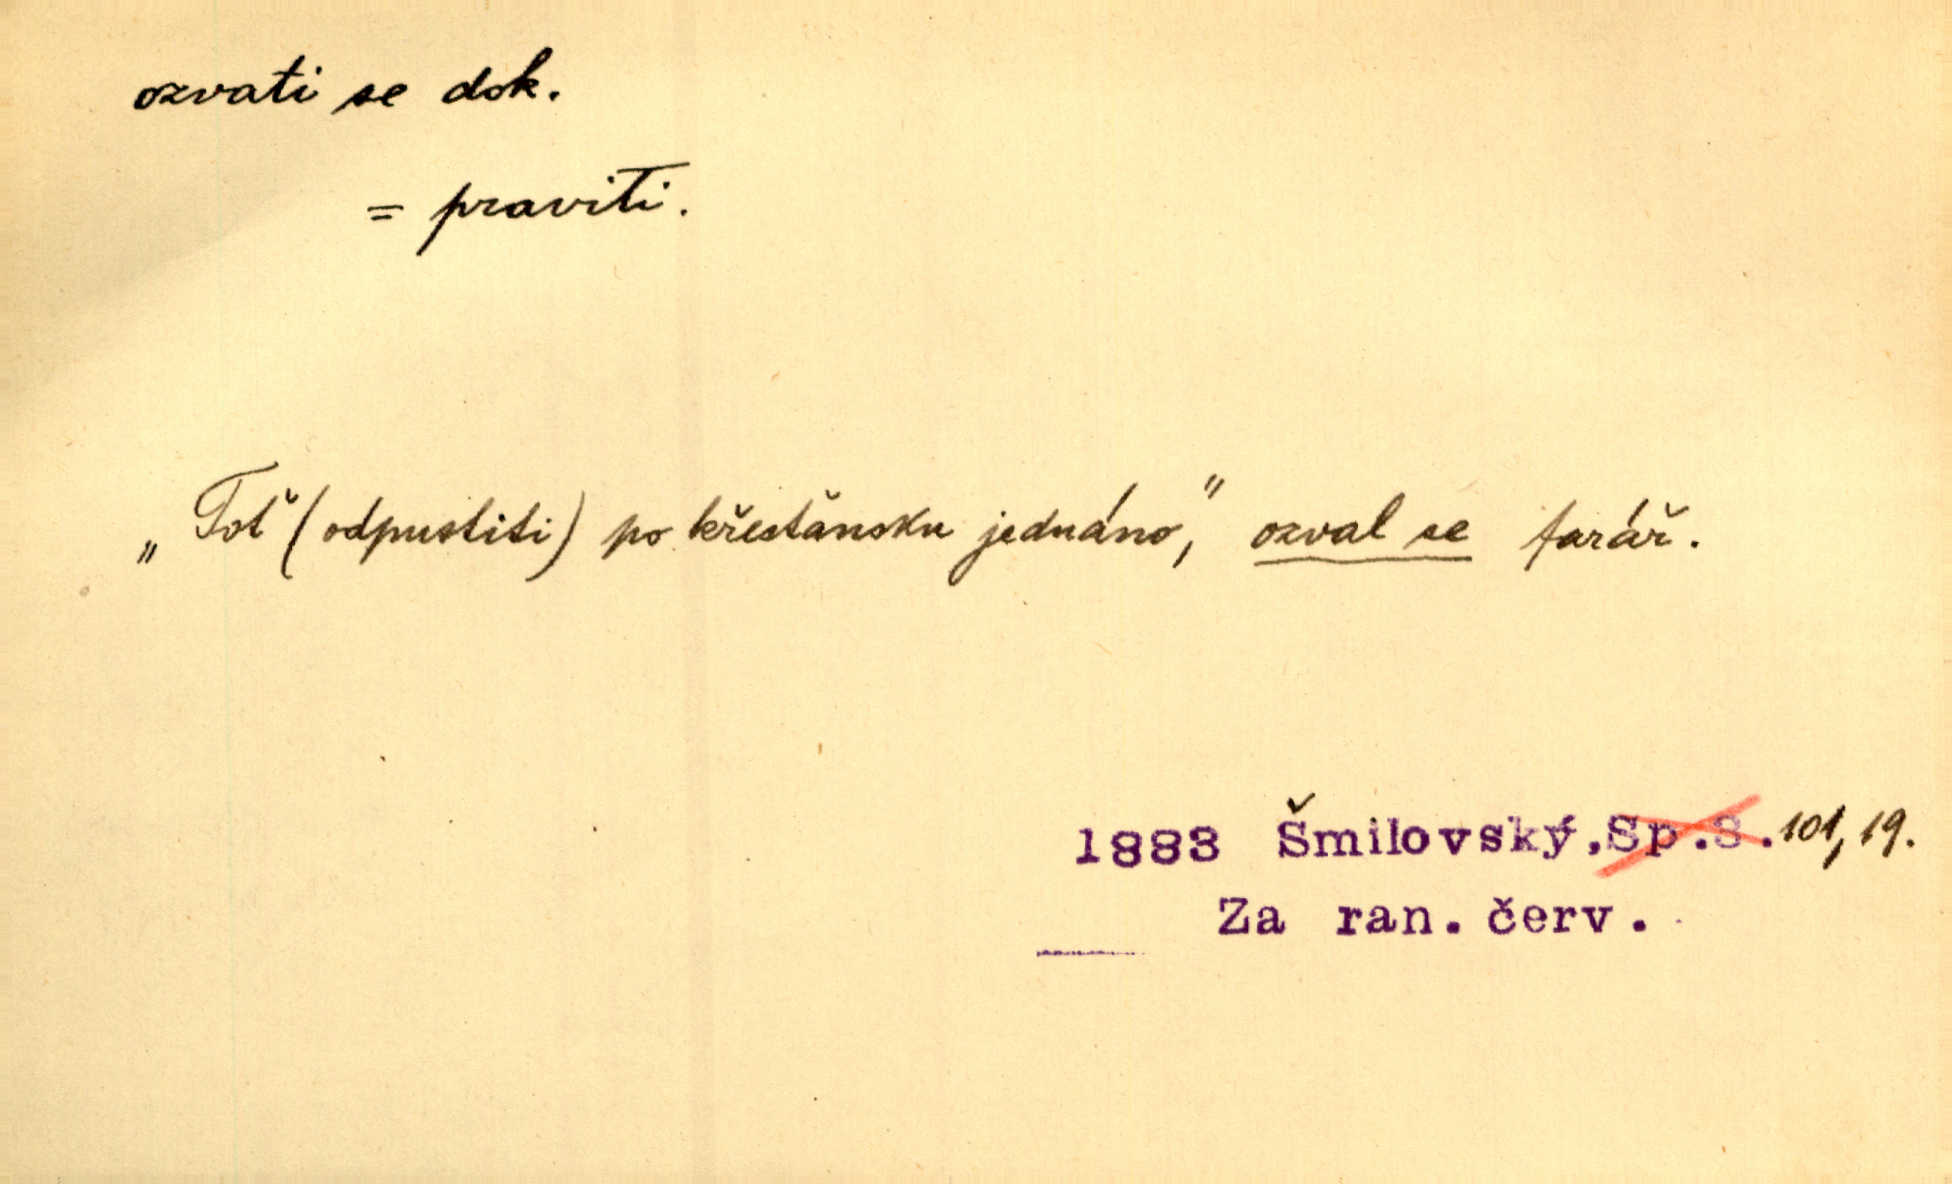 ozvati se dok.
= praviti.
„Toť (odpustiti) po křesťansku jednáno,” ozval se farář.
1883 Šmilovský, Sp.S. 101, 19.
Za ran. červ.